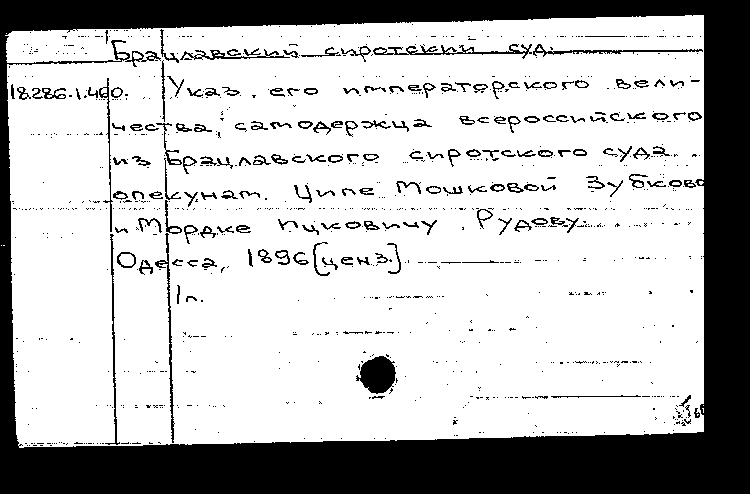 Брацлавский сиротский суд.
18.286.1.460. Указ его императорского вели-
чества, самодержца всероссийского
из Брацлавского сиротского суда
опекунам Ципе Мошковой Зубково
и Мордке Ицковичу Рудову.
Одесса, 1896 [ценз.]
1л.